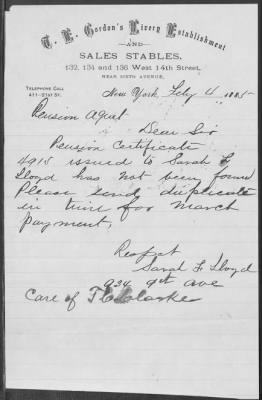 T. E. Gordon's Livery Establishment
—AND—
SALES STABLES,
132, 134 and 136 West 14th Street,
NEAR SIXTH AVENUE,
TELEPHONE CALL
411-21ST ST.
New York, Feby 4 1885
Pension Agent
Dear Sir
Pension Certificate
4915 issued to Sarah F
Lloyd has not been found
Please send duplicate
in time for March
payment,
Respct
Sarah F Lloyd
934 9th ave
Care of Clarke